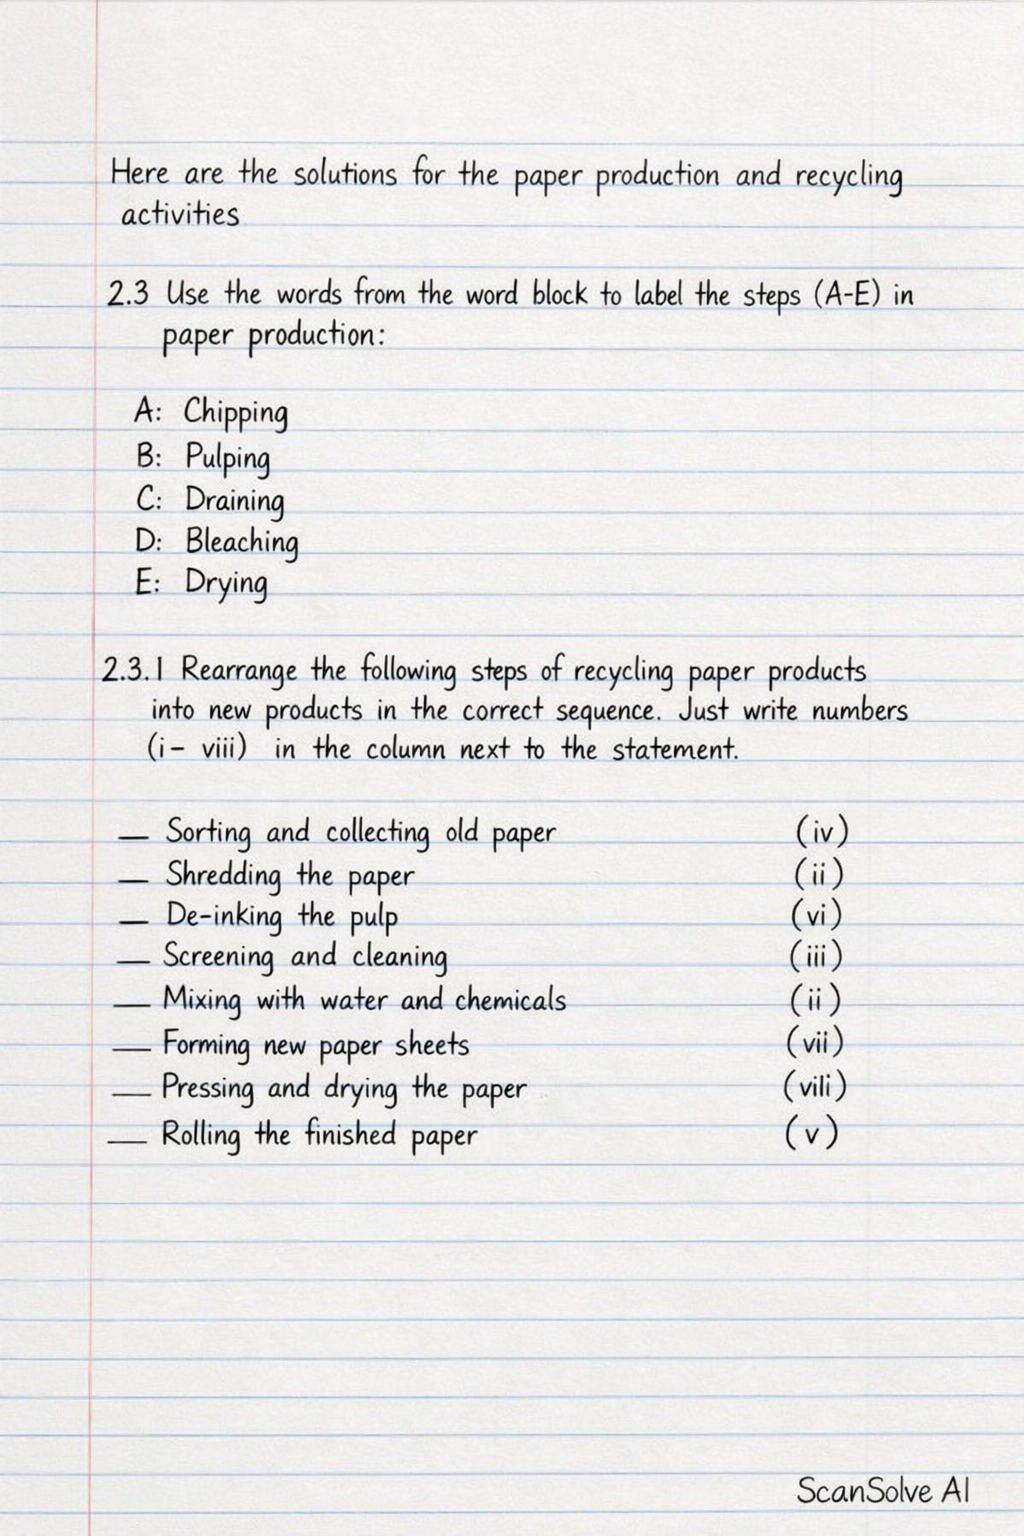 Here are the solutions for the paper production and recycling
activities
2.3 Use the words from the word block to label the steps (A-E) in
paper production:
A: Chipping
B: Pulping
C: Draining
D: Bleaching
E: Drying
2.3.1 Rearrange the following steps of recycling paper products
into new products in the correct sequence. Just write numbers
(i- viii) in the column next to the statement.
— Sorting and collecting old paper (iv)
— Shredding the paper (ii)
— De-inking the pulp (vi)
— Screening and cleaning (iii)
— Mixing with water and chemicals (ii)
— Forming new paper sheets (vii)
— Pressing and drying the paper (viii)
— Rolling the finished paper (v)
ScanSolve AI